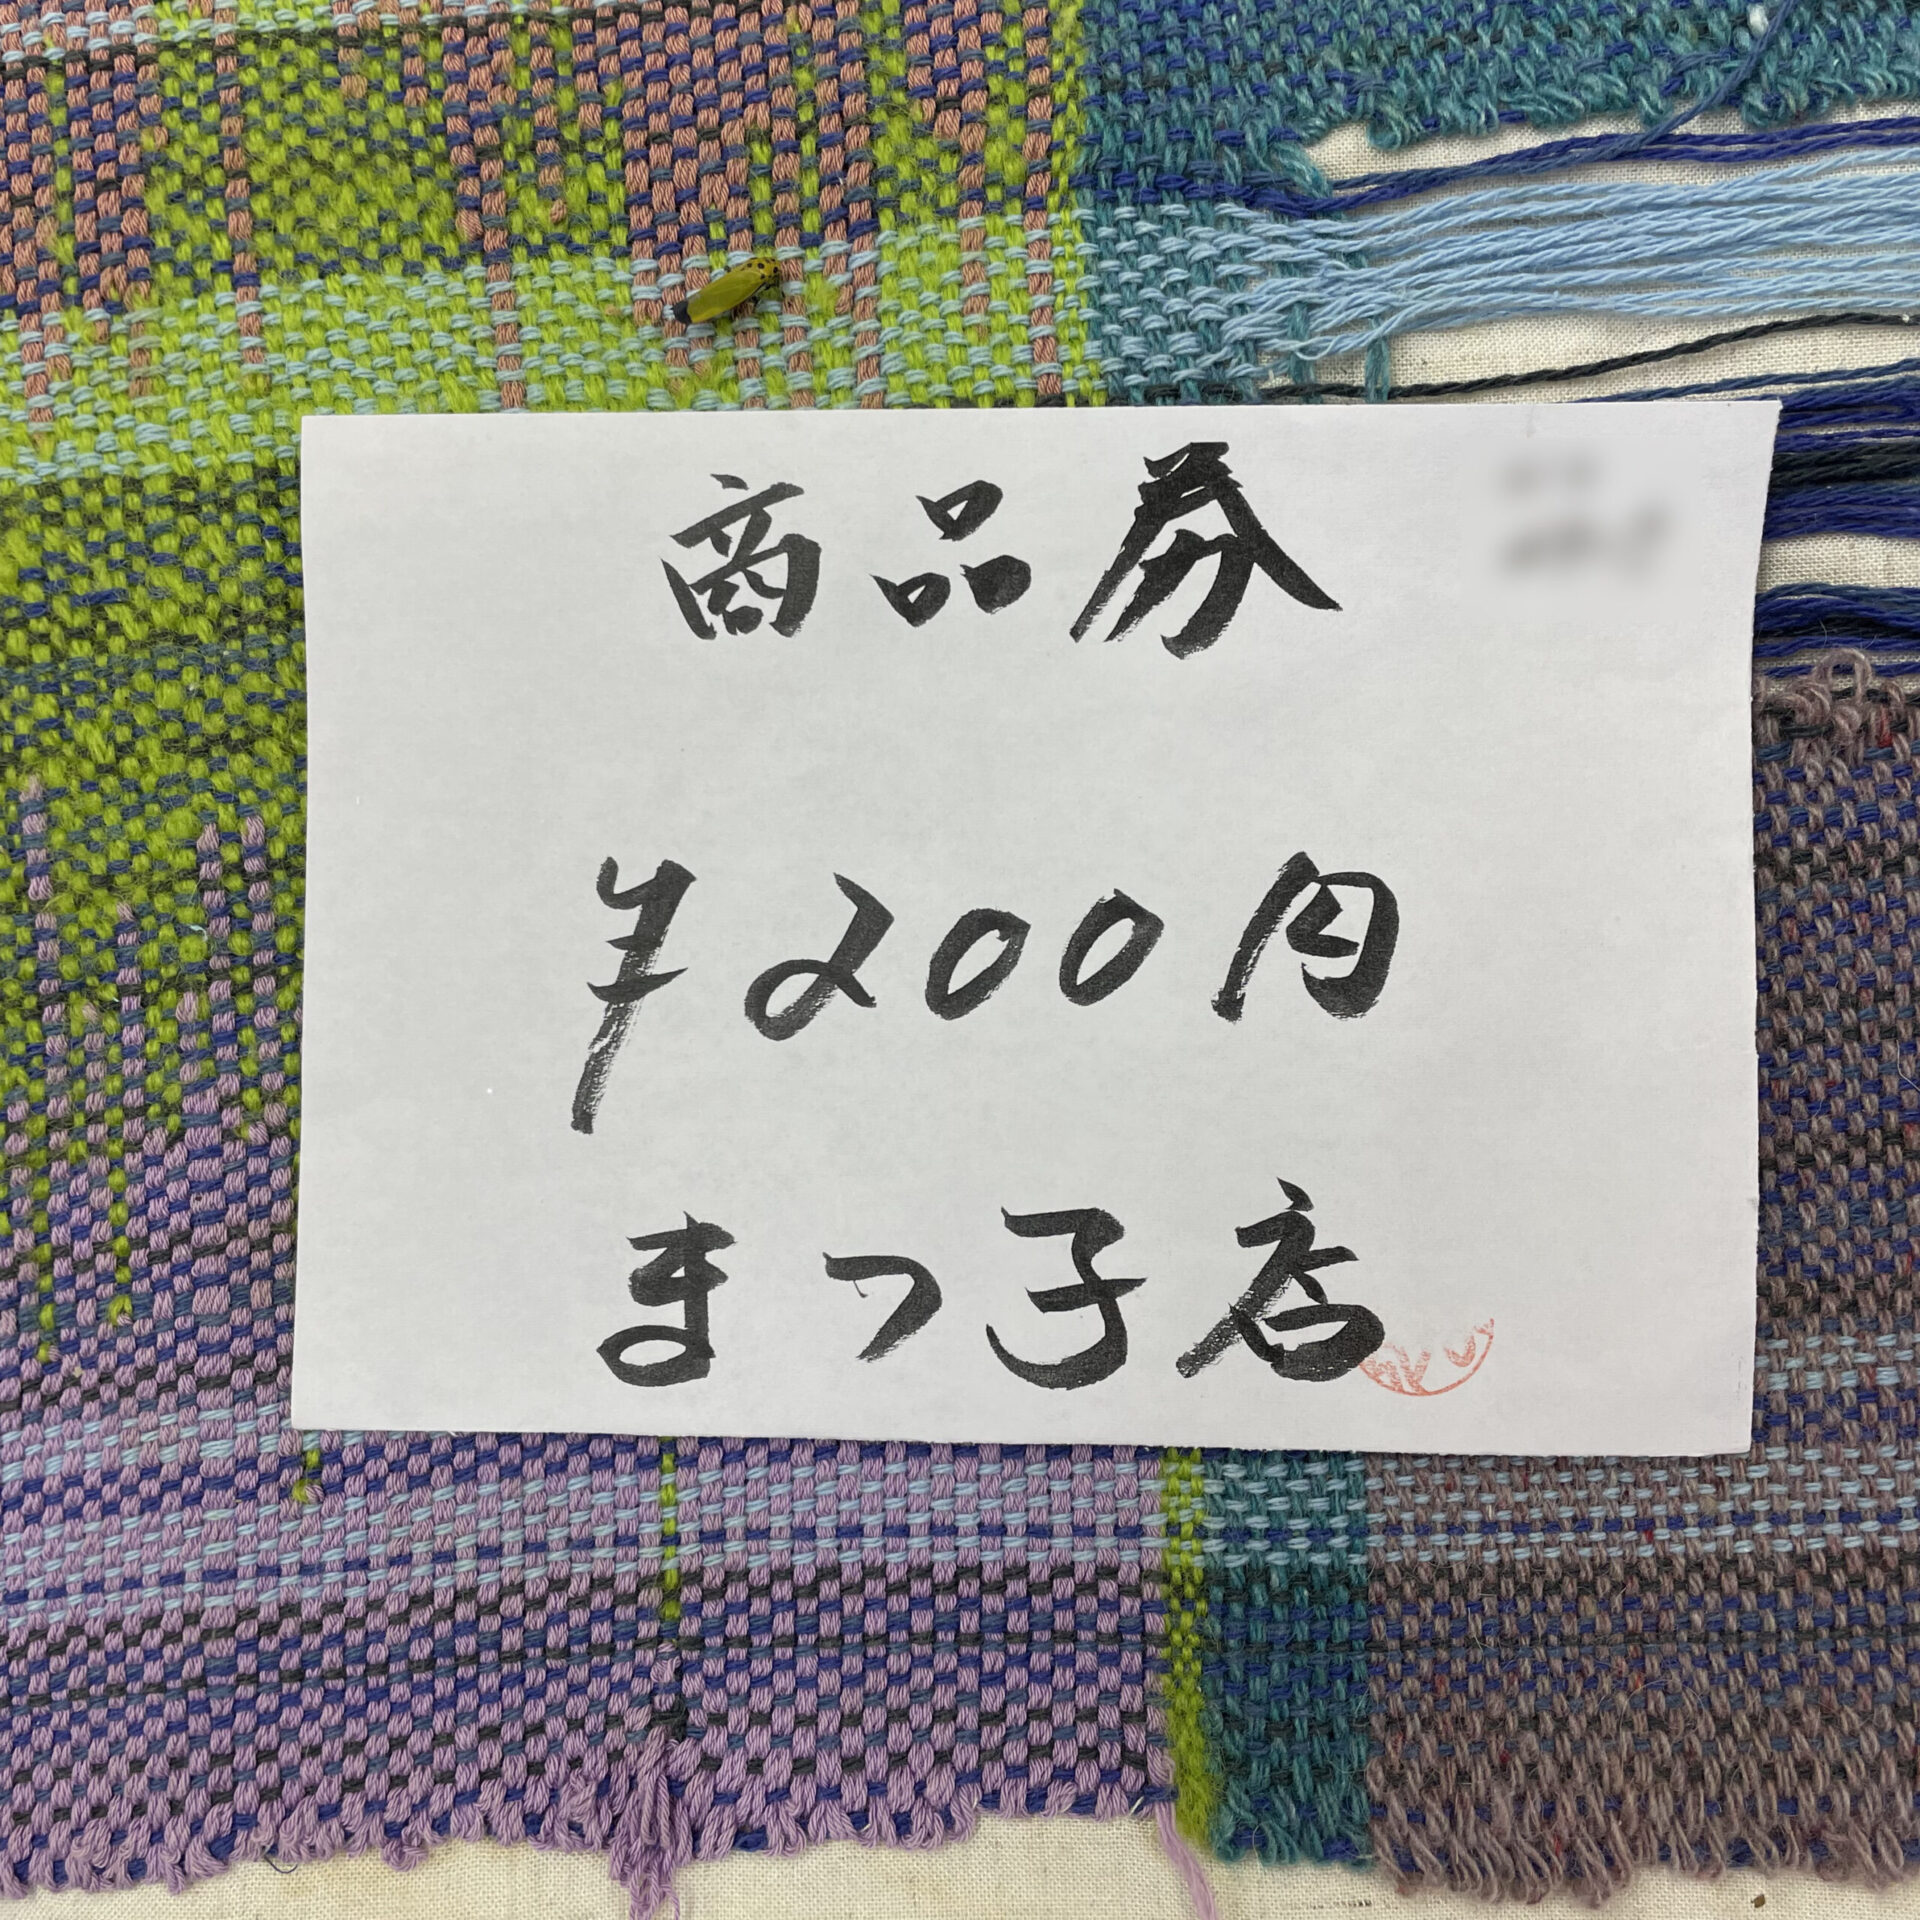 商品券
¥200円
まつ子店